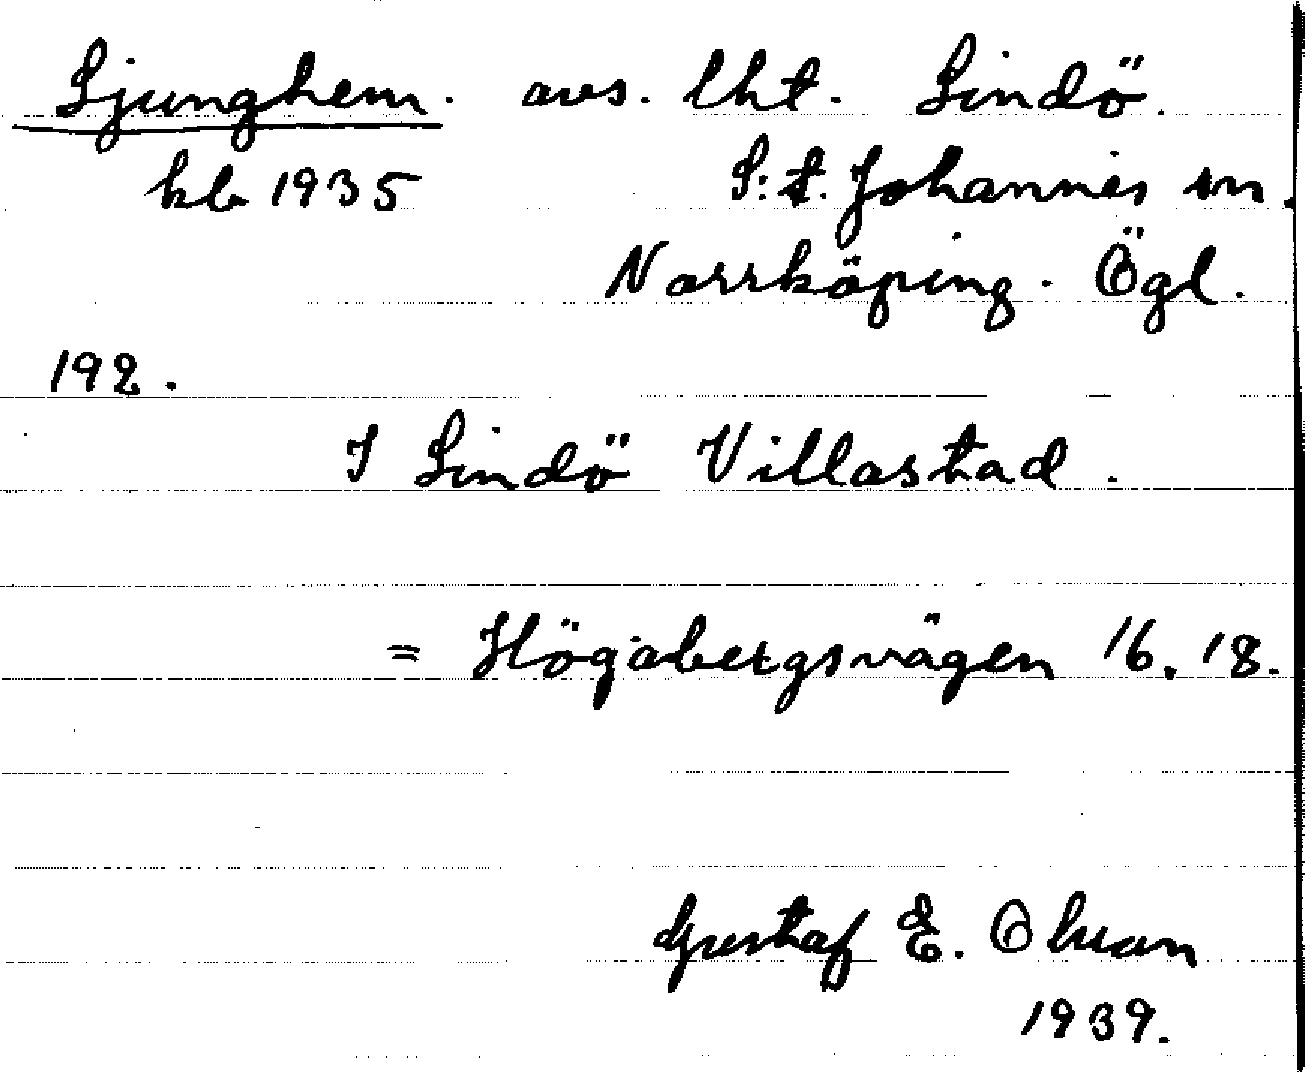 Ljunghem. avs. lht. Lindö.
klr 1935 S:t. Johannes sn.
Norrköping. Ögl.
192.
I Lindö Villastad.
= Högabergsvägen 16. 18.
Gustaf E. Olsson
1939.